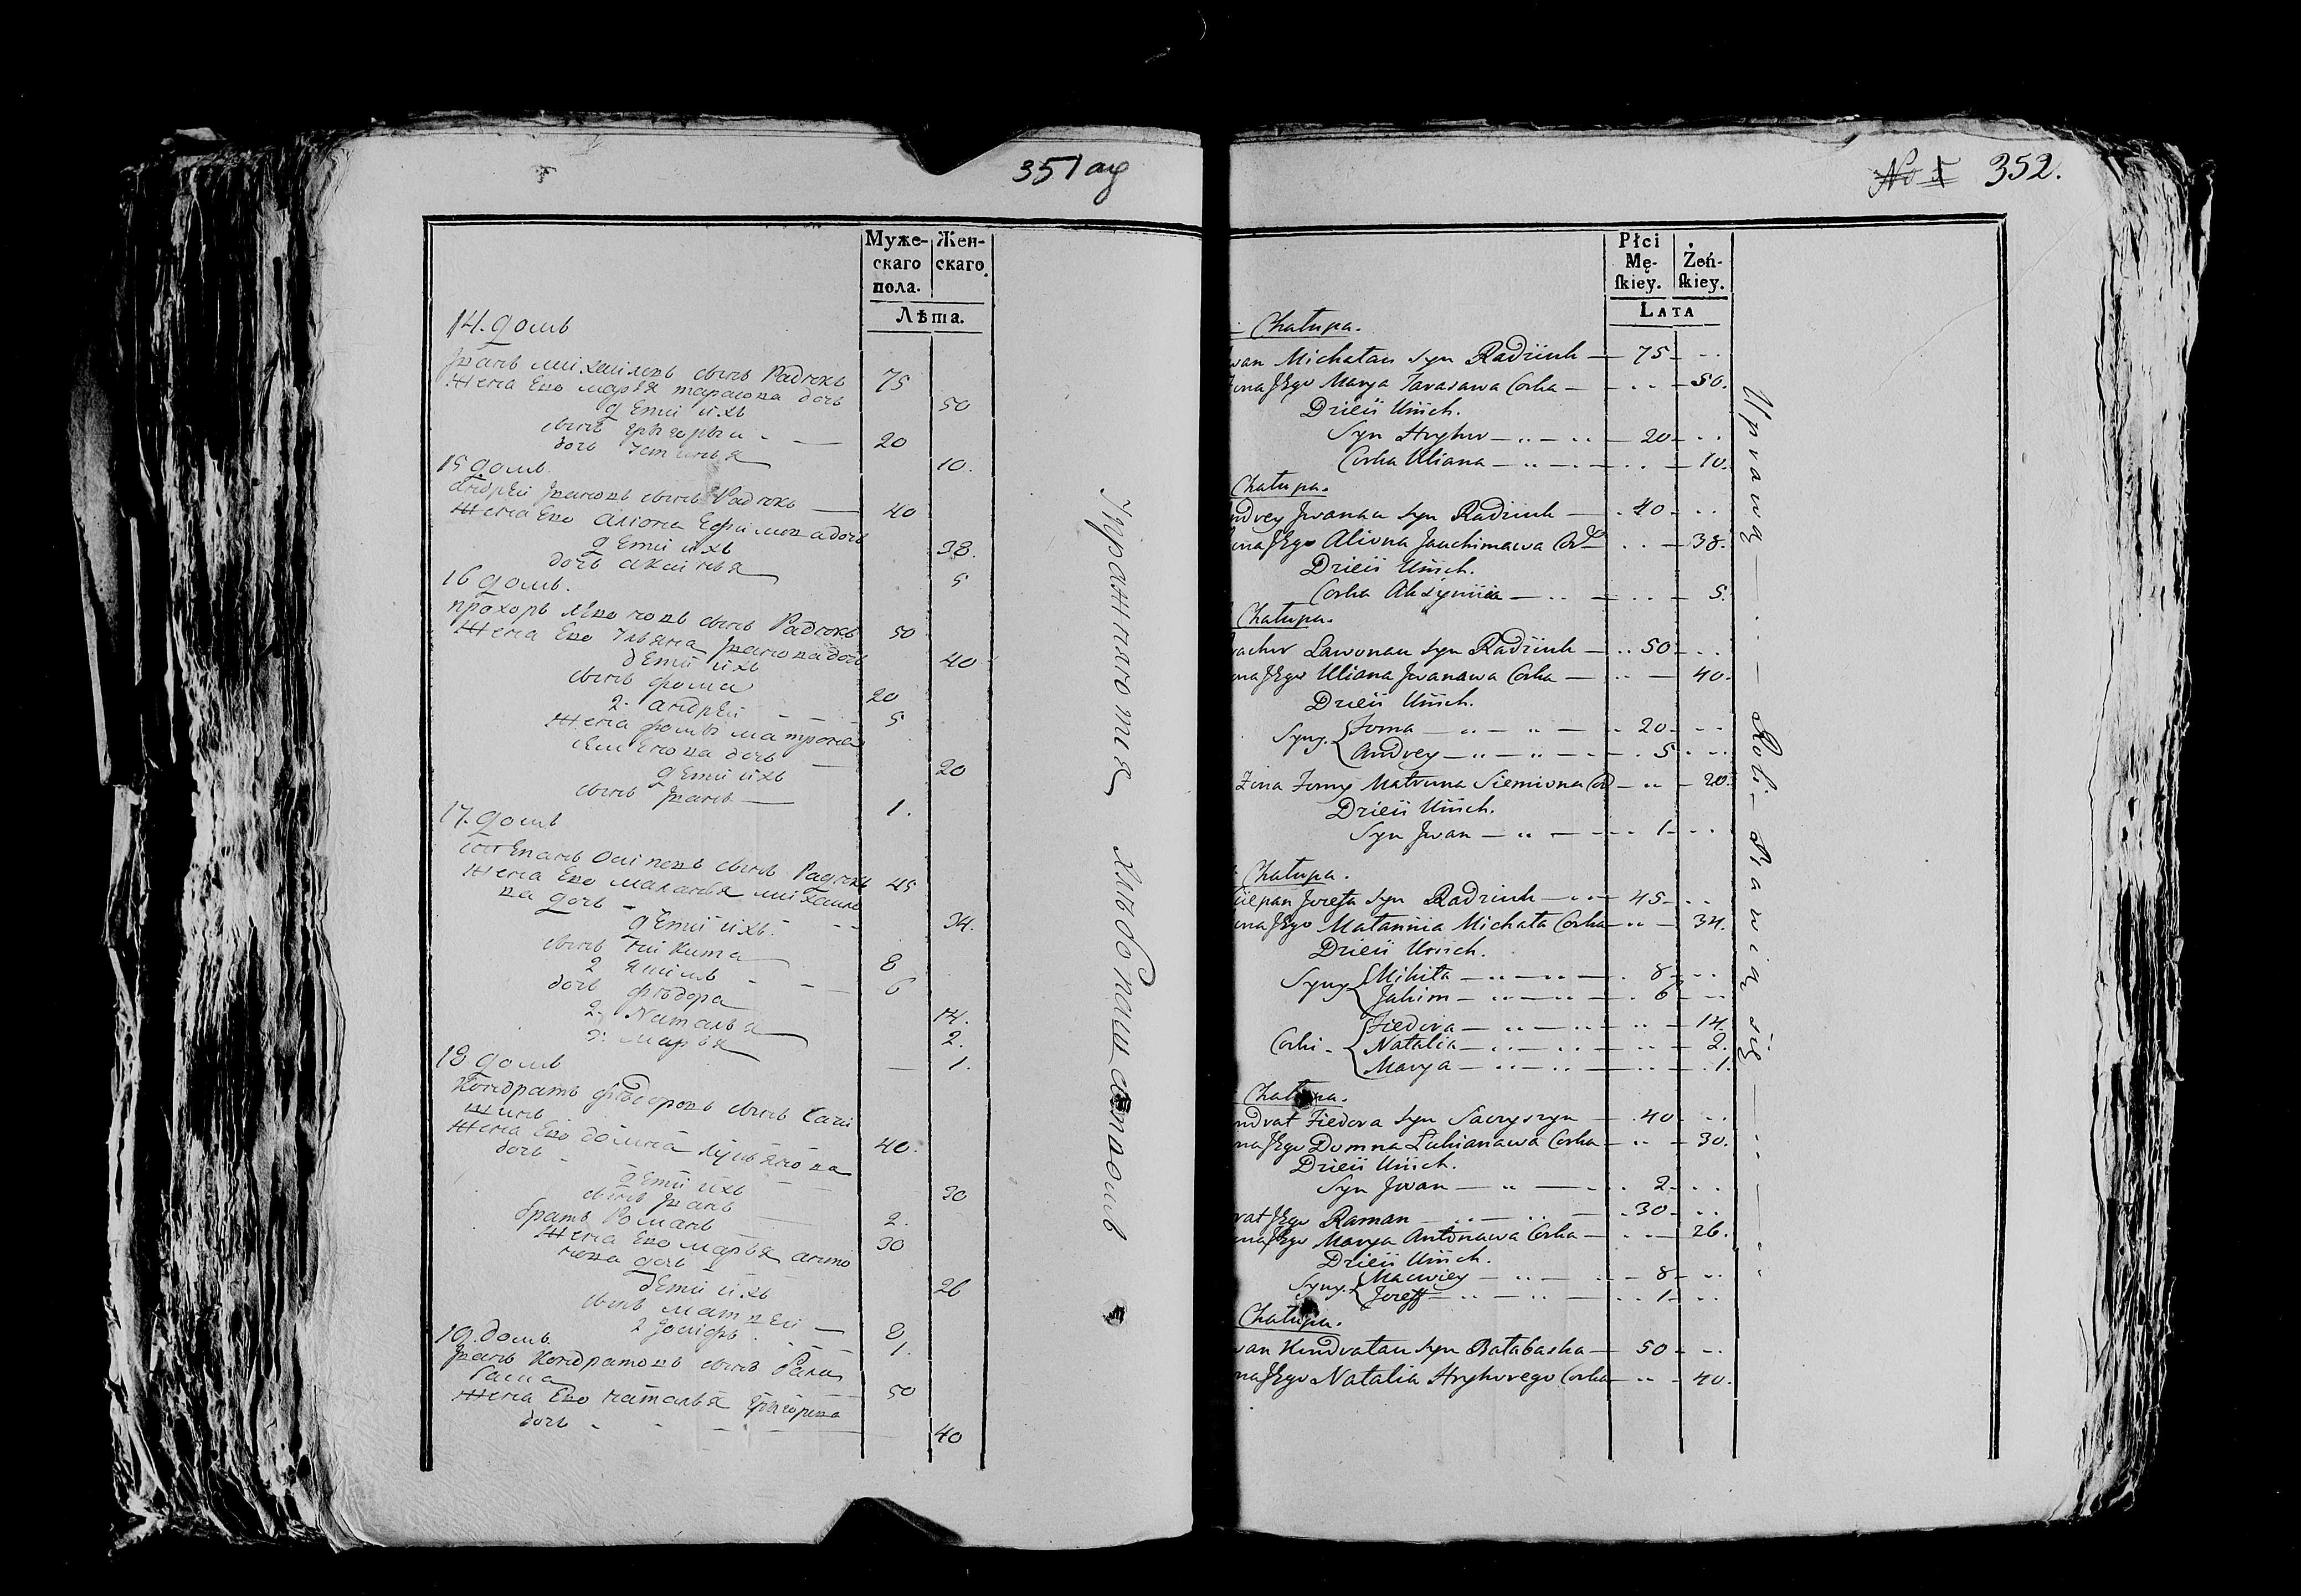 351 ад
Муже-
скаго
пола.
Жен-
скаго.
Лѣта.
14. домъ
Иванъ михайловъ сынъ Радюкъ 75
Жена Ево марья тарасова дочь 50
дети ихъ
сынъ григорьи 20
дочь Ульянья 10.
15 домъ.
андрей Ивановъ сынъ Радюкъ 40
Жена Ево алиона Ефимова дочь 38.
дети ихъ
дочь аксинья 5
16 домъ.
прохоръ левоновъ сынъ Радюкъ 50
Жена Ево Ульяна Иванова дочь 40
дети ихъ
сынъ фома 20
2. андрей 5
Жена фомы матрона
семенова дочь 20
дети ихъ
сынъ Иванъ 1.
17. домъ
степанъ осиповъ сынъ Радюкъ 45
Жена Ево маланья михайло
ва дочь 34.
дети ихъ.
сынъ никита 8
2 якимъ 6
дочь фѣдора 14.
2. Наталья 2.
3. марья 1.
18 домъ
Кондратъ фѣдоровъ сынъ
40.
Жена Ево домна лукьянова
дочь 30
дети ихъ
сынъ Иванъ 2.
братъ Романъ 30
Жена Ево марья анто
нова дочь 26
дети ихъ
сынъ матвей 8
2 Iосифъ 1.
19. домъ.
Иванъ Кондратовъ сынъ
50
Жена Ево наталья григорева
дочь 40
хлебопашествомъ
No 5 352.
Płci
Mę-
ſkiey.
Żeń-
ſkiey.
LATA
Chałupa.
wan Michałau Syn Radziuk 75
ona Jego Marya Tarasawa Corka 50.
Dzieci Unich.
Syn Hryhor 20
Corka Uliana 10.
Chałupa.
ndrey Jwanau Syn Radziuk 40
ona Jego Aliona Jauchimawa Cor 38.
Dzieci Unich.
Corka Aksynnia 5.
Chałupa.
rachor Lawonau Syn Radziuk 50
ona Jego Uliana Jwanawa Corka 40.
Dzieci Unich.
Syny. Foma 20
Andrey 5
Żona Fomy Matruna Siemiona Cor 20.
Dzieci Unich.
Syn Jwan 1
Chałupa.
ciepan Jozefa Syn Radziuk 45
ona Jego Małannia Michała Corka 34.
Dzieci Unich.
Syny Mikita 8
Jakim 6
Fiedora 14.
Corki Natalia 2.
Marya 1.
Chałupa.
ndrat Fiedora Syn 40
na Jego Domna Łukianawa Corka 30.
Dzieci Unich.
Syn Jwan 2
rat Jego Raman 30
ona Jego Marya Antonawa Corka 26.
Dzieci Unich.
Syny. Maciwiey 8
Jozeff 1
Chałupa.
wan Kindratau Syn Bałabaska 50
na Jego Natalia Hryhorego Corka 40.
Uprawą Roli Bawią się